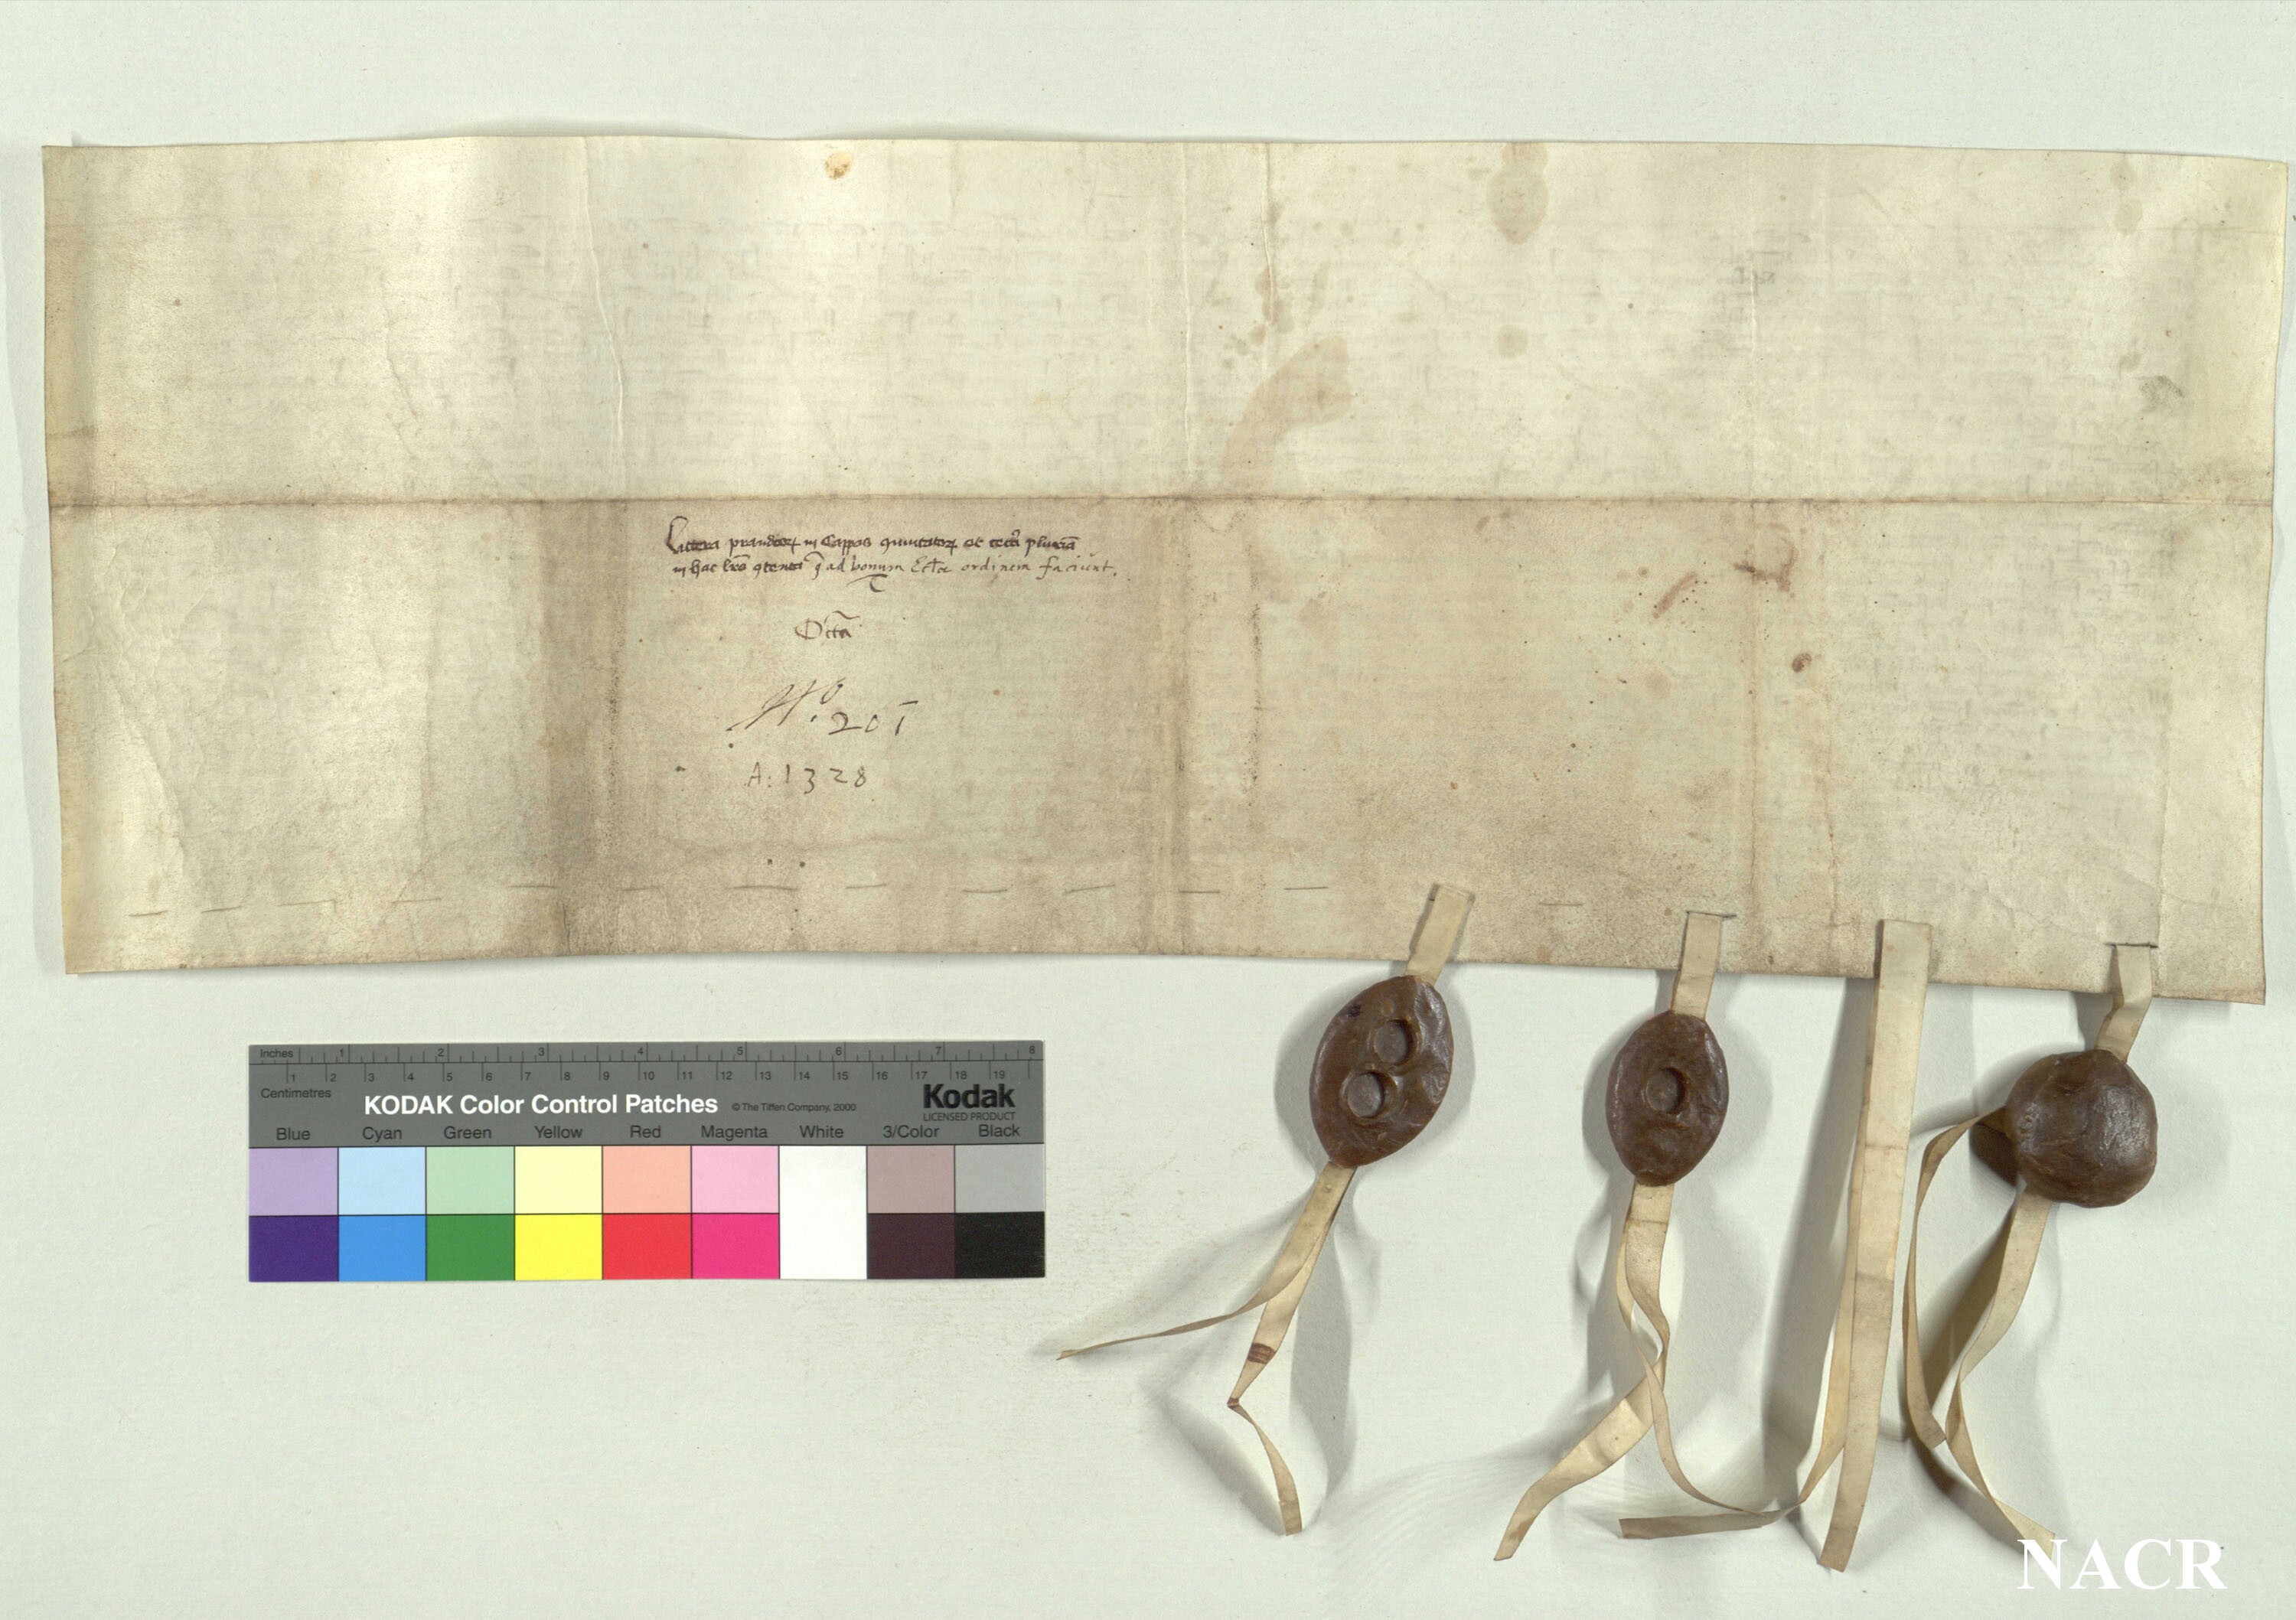 Littera prandiorꝝ in Cappas ꝯmutatorꝝ et
in hac lrã ꝯtenta q̃ ad bonum Eccl̃e ordinem faciũt.
Octã
No. 201
A: 1328
Inches 1 2 3 4 5 6 7 8
1 2 3 4 5 6 7 8 9 10 11 12 13 14 15 16 17 18 19
Centimetres
KODAK Color Control Patches © The Tiffen Company, 2000 Kodak
LICENSED PRODUCT
Blue Cyan Green Yellow Red Magenta White 3/Color Black
NACR